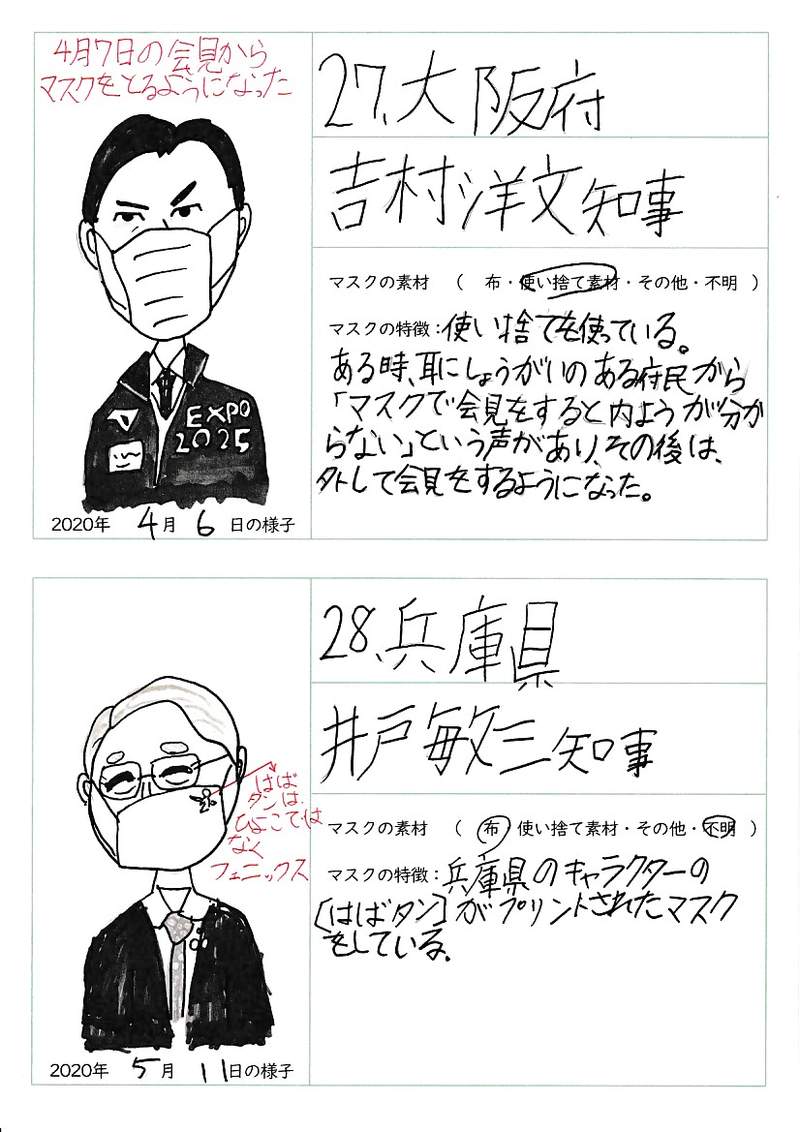 4月7日の会見から
マスクをとるようになった
EXPO
2025
2020年 4月 6日の様子
27、大阪府
吉村洋文知事
マスクの素材 （ 布・使い捨て素材・その他・不明 ）
マスクの特徴：使い捨てを使っている。
ある時、耳にしょうがいのある府民から
「マスクで会見をすると内ようが分か
らない」という声があり、その後は、
外して会見をするようになった。
28、兵庫県
井戸敏三知事
はば
タンは、
ひよこでは
なく
フェニックス
2020年 5月 11日の様子
マスクの素材 （ 布・使い捨て素材・その他・不明 ）
マスクの特徴：兵庫県のキャラクターの
［はばタン］がプリントされたマスク
をしている。